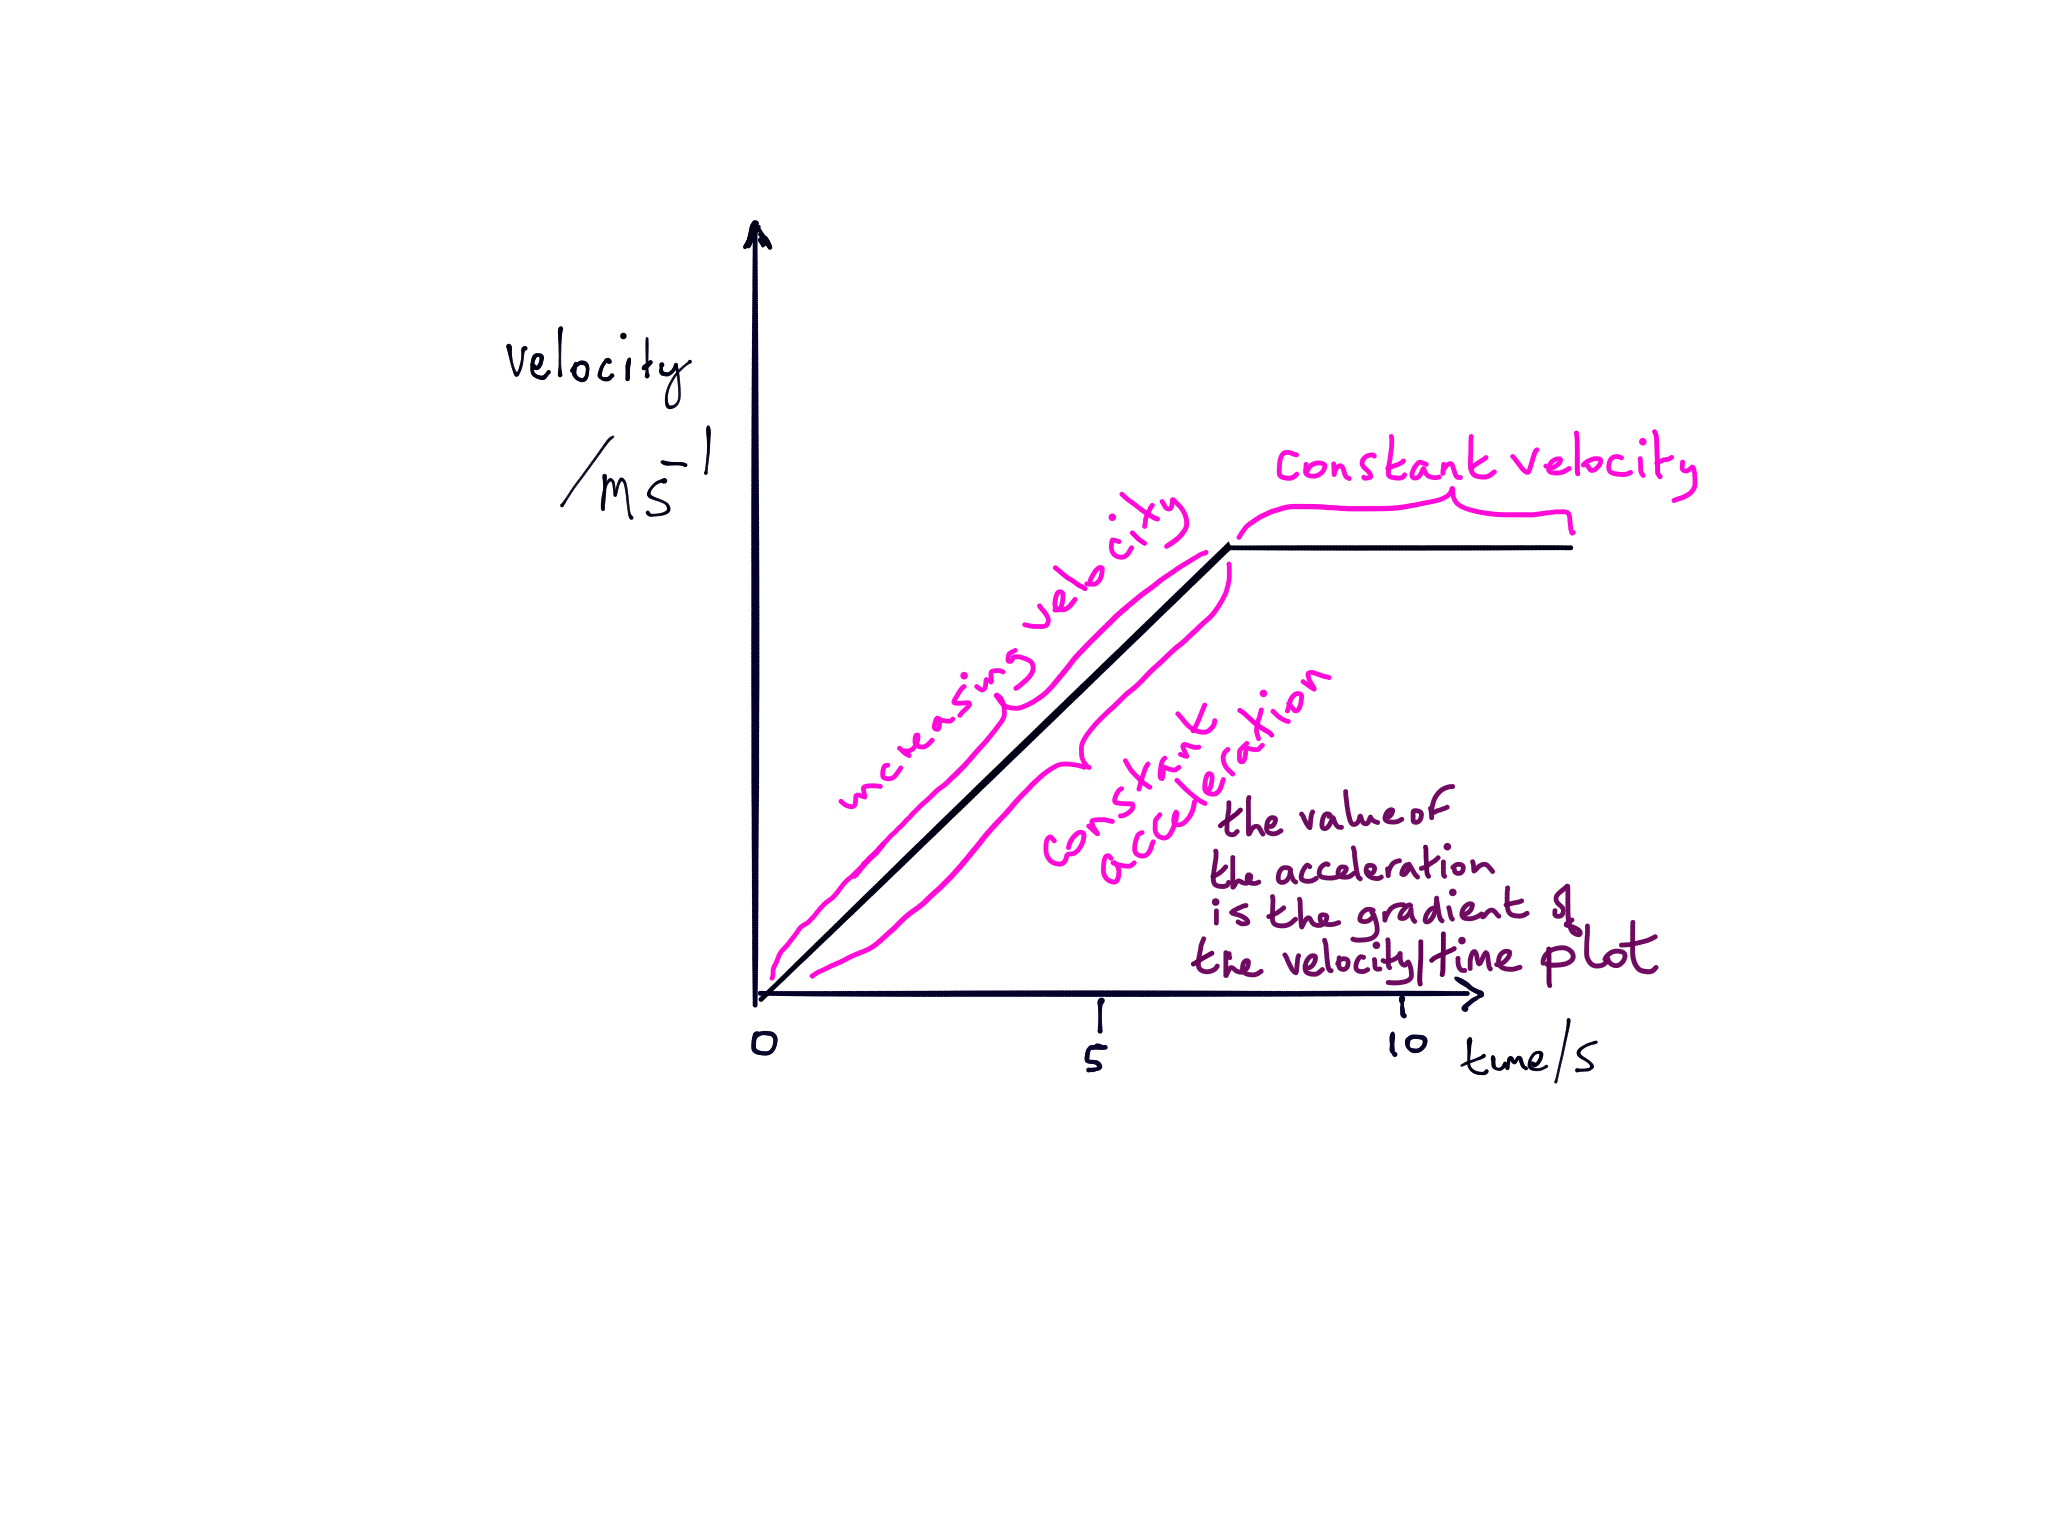 velocity
/ms⁻¹
constant velocity
increasing velocity
constant
acceleration
the value of
the acceleration
is the gradient of
the velocity/time plot
0
5
10
time/s